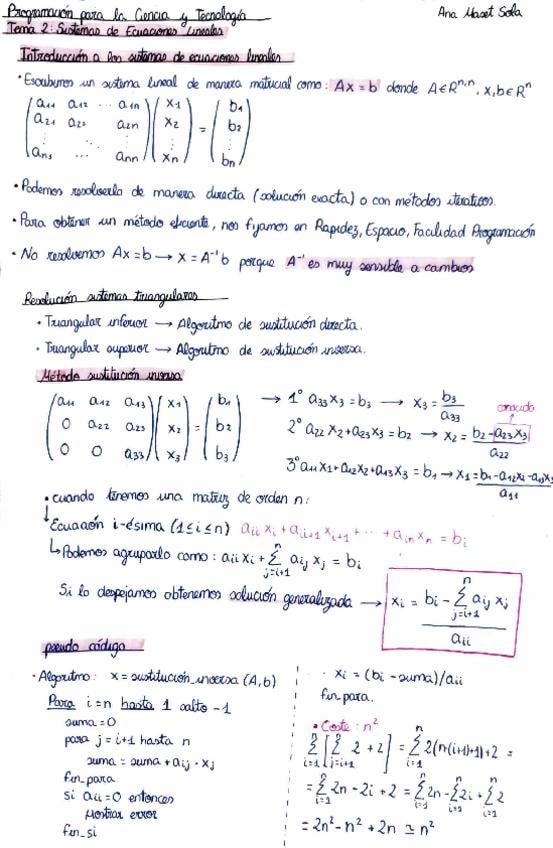 Programación para la Ciencia y Tecnología
Ana Maset Sala
Tema 2: Sistemas de Ecuaciones Lineales
Introducción a los sistemas de ecuaciones lineales
• Escribimos un sistema lineal de manera matricial como: Ax = b donde A∈Rⁿ'ⁿ, x,b∈Rⁿ
(a11 a12 ... a1n) (x1) (b1)
(a21 a22 a2n) (x2) = (b2)
(⋮ ⋱ ⋮) (⋮) (⋮)
(an1 ... ann) (xn) (bn)
• Podemos resolverla de manera directa (solución exacta) o con métodos iterativos.
• Para obtener un método eficiente, nos fijamos en Rapidez, Espacio, Facilidad Programación
• No resolvemos Ax = b → x = A⁻¹b porque A⁻¹ es muy sensible a cambios
Resolución sistemas triangulares
• Triangular inferior → Algoritmo de sustitución directa.
• Triangular superior → Algoritmo de sustitución inversa.
Método sustitución inversa
(a11 a12 a13) (x1) (b1)
(0 a22 a23) (x2) = (b2)
(0 0 a33) (x3) (b3)
→ 1º a33x3 = b3 → x3 = b3/a33
conocido
2º a22x2 + a23x3 = b2 → x2 = (b2 - a23x3)/a22
3º a11x1 + a12x2 + a13x3 = b1 → x1 = (b1 - a12x2 - a13x3)/a11
• cuando tenemos una matriz de orden n:
Ecuación i-ésima (1≤i≤n) aiixi + aii+1xi+1 + ... + ainxn = bi
↳ Podemos agruparlo como: aiixi + Σ(j=i+1)ⁿ aijxj = bi
Si lo despejamos obtenemos solución generalizada → xi = (bi - Σ(j=i+1)ⁿ aijxj)/aii
pseudo código
• Algoritmo: x = sustitución_inversa (A,b)
Para i=n hasta 1 salto -1
suma = 0
para j = i+1 hasta n
suma = suma + aij · xj
fin_para
si aii = 0 entonces
Mostrar error
fin_si
xi = (bi - suma)/aii
fin_para.
• Coste: n²
Σ(i=1)ⁿ [Σ(j=i+1)ⁿ 2 + 2] = Σ(i=1)ⁿ 2(n-(i+1)+1)+2 =
= Σ(i=1)ⁿ 2n - 2i + 2 = Σ(i=1)ⁿ 2n - Σ(i=1)ⁿ 2i + Σ(i=1)ⁿ 2
= 2n² - n² + 2n ≃ n²